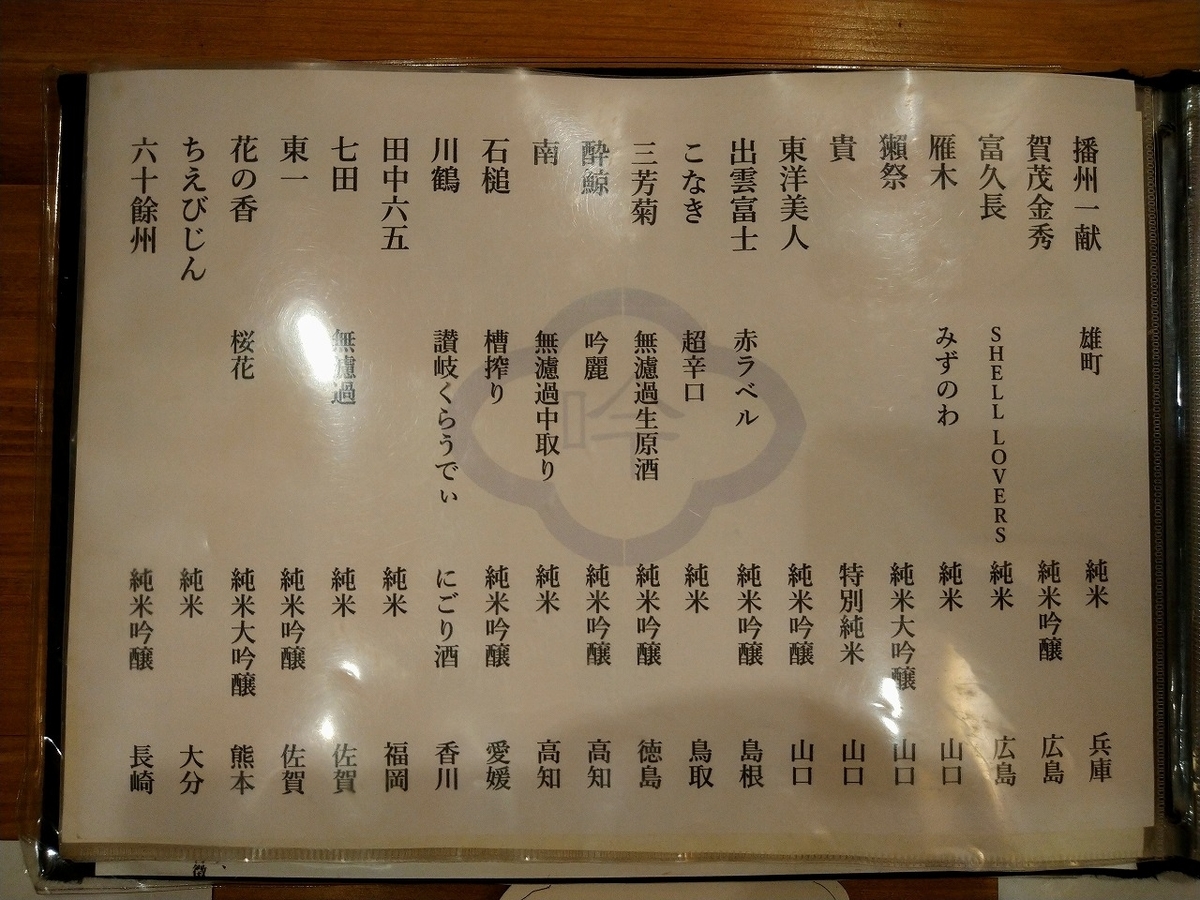 播州一献 雄町 純米 兵庫
賀茂金秀 純米吟醸 広島
富久長 SHELL LOVERS 純米 広島
雁木 みずのわ 純米 山口
獺祭 純米大吟醸 山口
貴 特別純米 山口
東洋美人 純米吟醸 山口
出雲富士 赤ラベル 純米吟醸 島根
こなき 超辛口 純米 鳥取
三芳菊 無濾過生原酒 純米吟醸 徳島
酔鯨 吟麗 純米吟醸 高知
南 無濾過中取り 純米 高知
石槌 槽搾り 純米吟醸 愛媛
川鶴 讃岐くらうでぃ にごり酒 香川
田中六五 純米 福岡
七田 無濾過 純米 佐賀
東一 純米吟醸 佐賀
花の香 桜花 純米大吟醸 熊本
ちえびじん 純米 大分
六十餘州 純米吟醸 長崎
吟